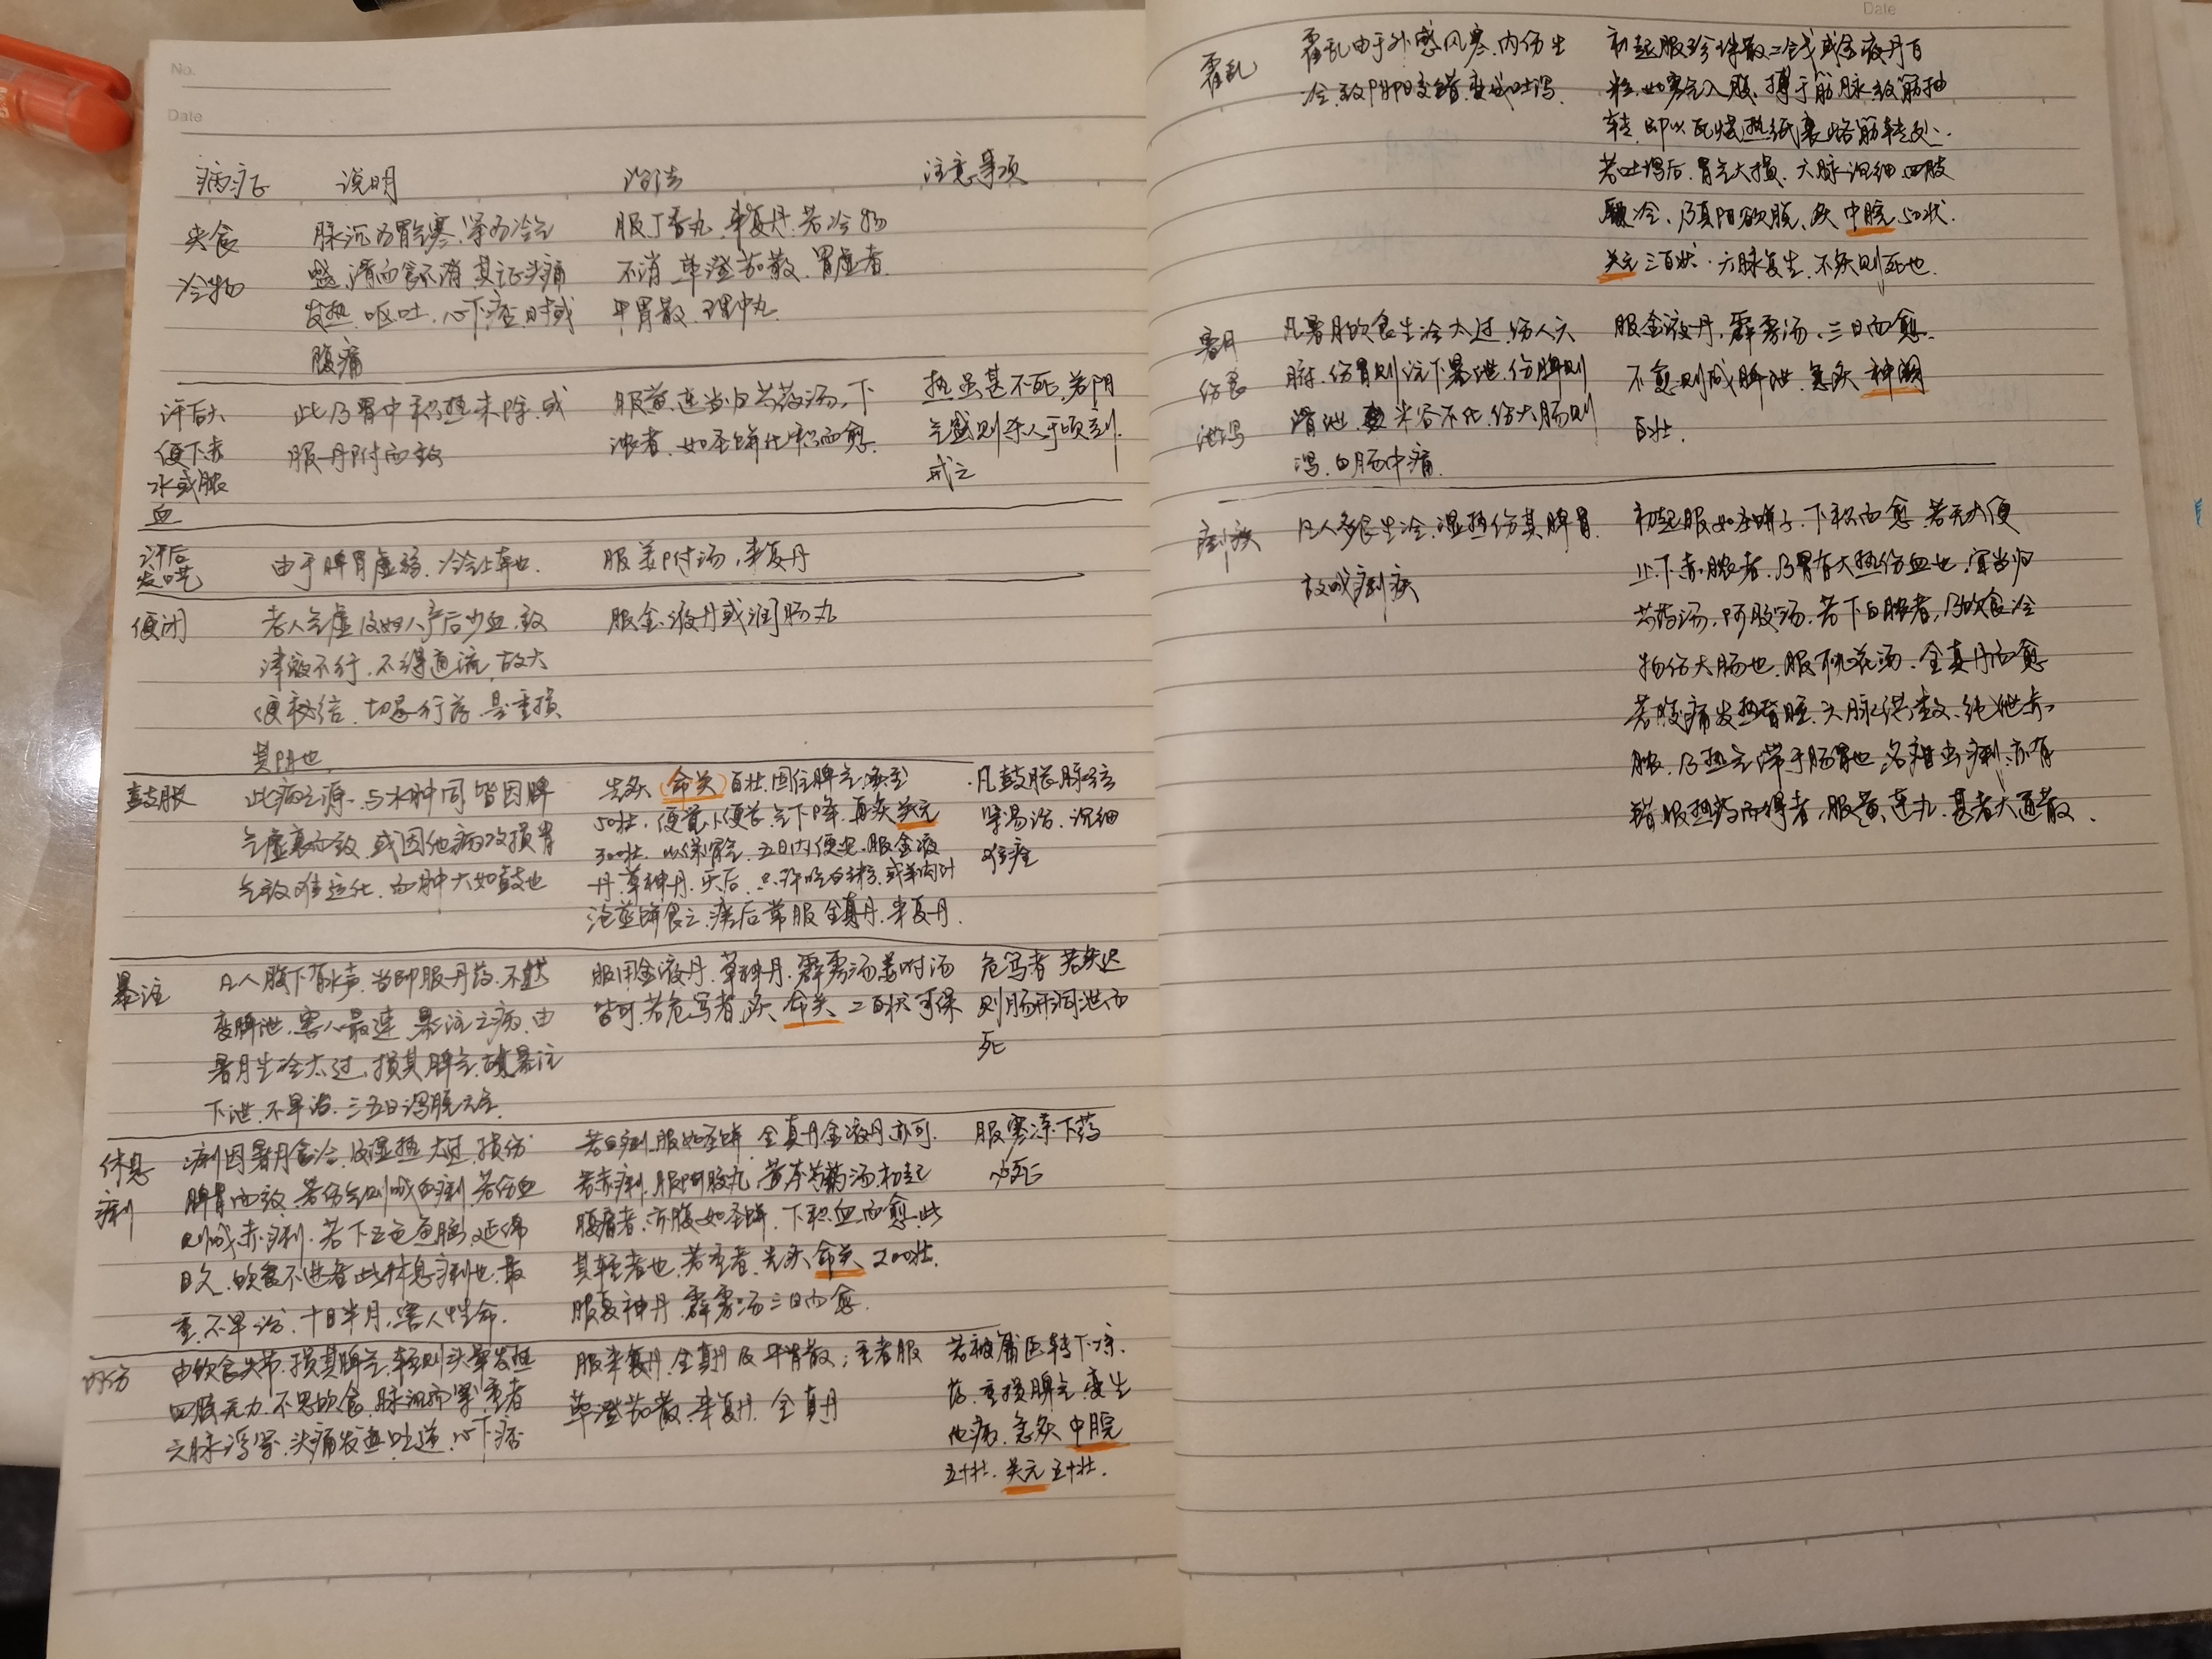 No.
Date
病症 说明 治法 注意事项
夹食 脉沉为胃寒,紧为冷气 服丁香丸,来复丹,若冷物
冷物 盛,滑而食不消,其证头痛 不消,荜澄茄散,胃虚者
发热,呕吐,心下痞,时或 平胃散,理中丸
腹痛
汗后大 此乃胃中积热未除,或 服黄连当归芍药汤,下 热虽甚不死,若阴
便下赤 服丹附而致 浓者,如圣饼化积而愈 气盛则杀人于顷刻.
水或脓 戒之
血
汗后 由于脾胃虚弱,冷气上奔也. 服姜附汤,来复丹
发哕
便闭 老人气虚及妇人产后少血,致 服金液丹或润肠丸
津液不行,不得通流,故大
便秘结,切忌行药,是重损
其阴也
鼓胀 此病之源,与水肿同,皆因脾 先灸(命关)百壮,固住脾气,灸至 凡鼓胀脉弦
气虚衰而致,或因他病攻损胃 50壮,便觉小便长,气下降,再灸关元 紧易治,沉细
气致难运化,而肿大如鼓也 300壮,以保肾气,五日内便安.服金液 难痊
丹,草神丹,灸后,只许吃白粥,或羊肉汁
泡蒸饼食之,瘥后常服全真丹,来复丹.
暴注 凡人腹下有水声,当即服丹药,不然 服用金液丹,草神丹,霹雳汤,姜附汤 危笃者 若灸迟
变脾泄,害人最速,暴注之病,由 皆可,若危笃者,灸 命关 二百壮可保 则肠开洞泄而
暑月生冷太过,损其脾气,故暴注 死
下泄,不早治,三五日泻脱元气.
休息 痢因暑月食冷,及湿热太过,损伤 若白痢,服如圣饼,全真丹金液丹亦可. 服寒凉下药
痢 脾胃而致,若伤气则成白痢,若伤血 若赤痢,服阿胶丸,黄芩芍药汤,初起 必死
则成赤痢,若下五色鱼脑,延绵 腹痛者,亦服如圣饼,下积血而愈,此
日久,饮食不进者此休息痢也,最 其轻者也,若重者,先灸 命关 200壮.
重,不早治,十日半月,害人性命. 服草神丹,霹雳汤三日而愈.
内伤 由饮食失节,损其脾气,轻则头晕发热 服来复丹,全真丹及平胃散;重者服 若被庸医转下凉
四肢无力,不思饮食,脉沉而紧,重者 荜澄茄散,来复丹,全真丹 药,重损脾气,变生
六脉浮紧,头痛发热吐逆,心下痞 他病,急灸 中脘
五十壮,关元五十壮.
Date
霍乱 霍乱由于外感风寒,内伤生 初起服珍珠散二钱或金液丹百
冷,致阴阳交错,变成吐泻. 粒,如寒气入腹,搏于筋脉,致筋抽
转,即以瓦烧热纸裹烙筋转处.
若吐泻后,胃气大损,六脉沉细,四肢
厥冷,乃真阳欲脱,灸 中脘 50壮.
关元三百壮,六脉复生,不灸则死也.
暑月 凡暑月饮食生冷太过,伤人六 服金液丹,霹雳汤,三日而愈.
伤食 腑,伤胃则注下暴泄,伤脾则 不愈则成脾泄,急灸 神阙
泄泻 滑泄,米谷不化,伤大肠则 百壮.
泻白肠中痛.
痢疾 凡人多食生冷,湿热伤其脾胃. 初起服如圣饼子,下积而愈,若无大便
故成痢疾 止下赤脓者,乃胃有大热伤血也,宜当归
芍药汤,阿胶汤,若下白脓者,乃饮食冷
物伤大肠也,服桃花汤,全真丹而愈
若腹痛发热昏睡,六脉洪数,纯泄赤
脓,乃热气滞于肠胃也,名疳虫痢,亦有
错服热药而得者,服黄连丸,甚者大通散.